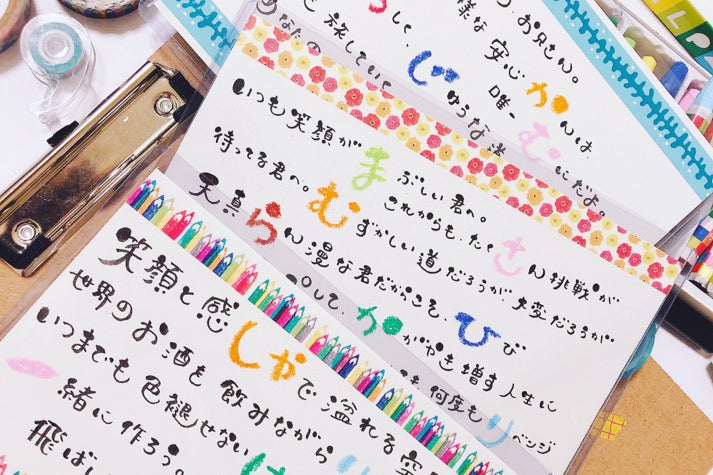 らしく、
様な安心
、お兄さん。
あなたの
と旅していて
唯一
かんは、
じゆうな
むにだよ。
いつも笑顔がまぶしい君へ。
これからも、たくさん挑戦が
待ってる君へ。
むずかしい道だろうが、大変だろうが
天真らん漫な君だからこそ、ひび
して、かがやき増す人生に
何度もリベンジ
笑顔と感しかで溢れる空
世界のお酒も飲みながら
いつまでも色褪せない
一緒に作ろう。
飛ばし